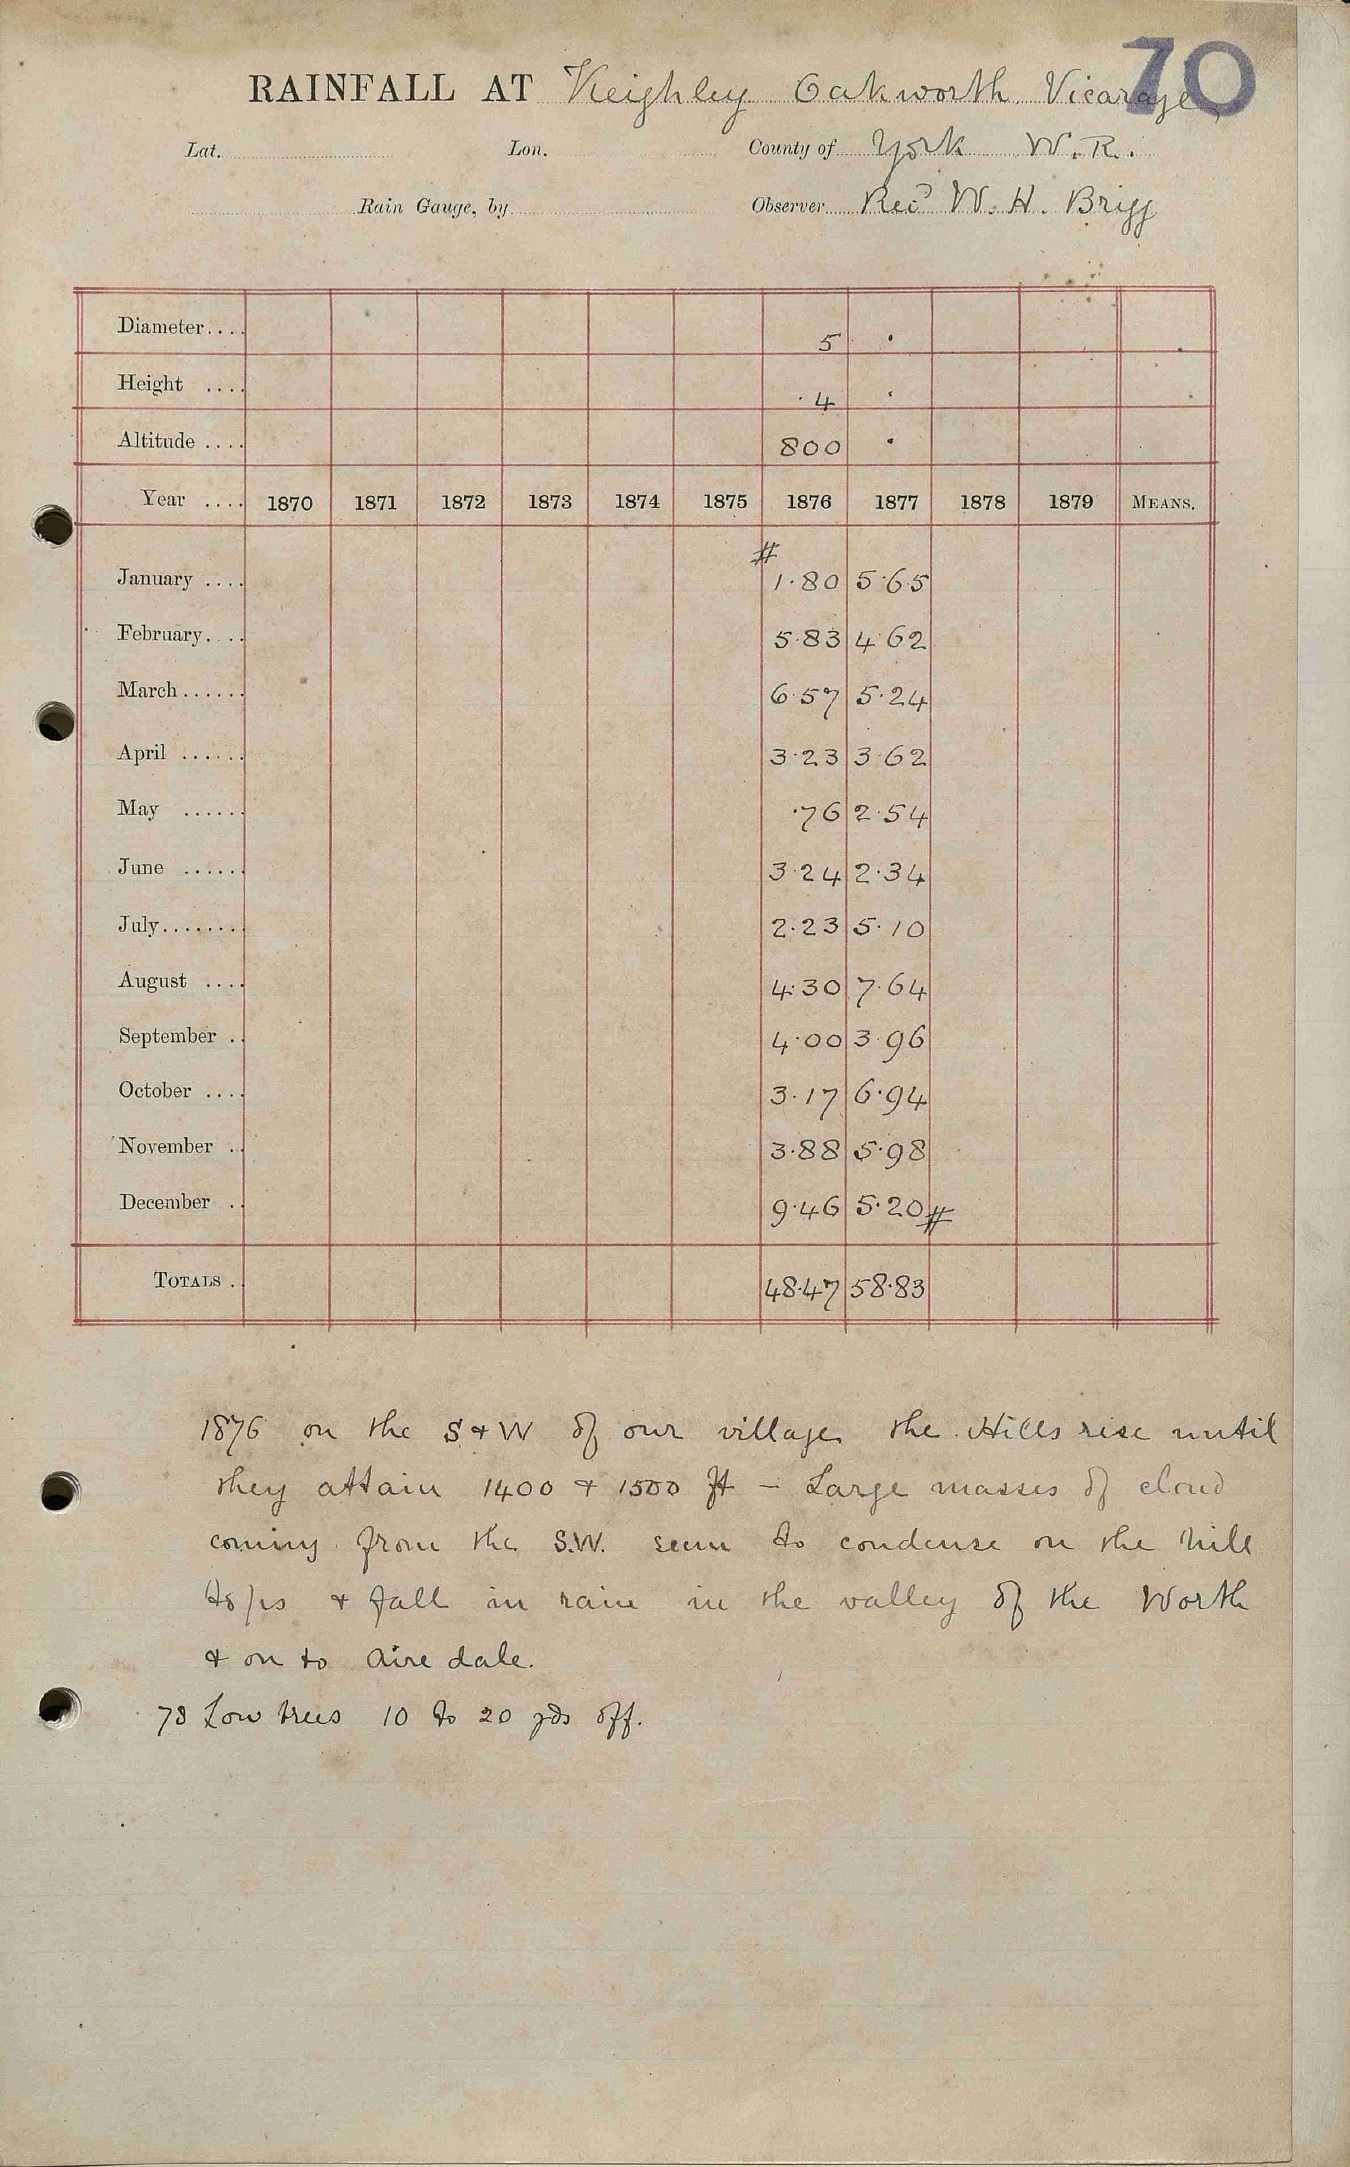 70
RAINFALL AT Keighley Oakworth Vicarage
Lat. Lon. County of York W.R.
Rain Gauge, by Observer Revd W. H. Brigg
Diameter.... 5 "
Height .... .4 "
Altitude .... 800 "
Year .... 1870 1871 1872 1873 1874 1875 1876 1877 1878 1879 MEANS.
#
January .... 1.80 5.65
February.... 5.83 4.62
March...... 6.57 5.24
April ...... 3.23 3.62
May ...... .76 2.54
June ...... 3.24 2.34
July........ 2.23 5.10
August .... 4.30 7.64
September .. 4.00 3.96
October .... 3.17 6.94
November .. 3.88 5.98
December .. 9.46 5.20 #
TOTALS . 48.47 58.83
1876 on the S & W of our village the Hills rise until
they attain 1400 & 1500 ft – Large masses of cloud
coming from the S.W. seem to condense on the hill
tops & fall in rain in the valley of the Worth
& on to Aire dale.
78 Low trees 10 to 20 yds off.